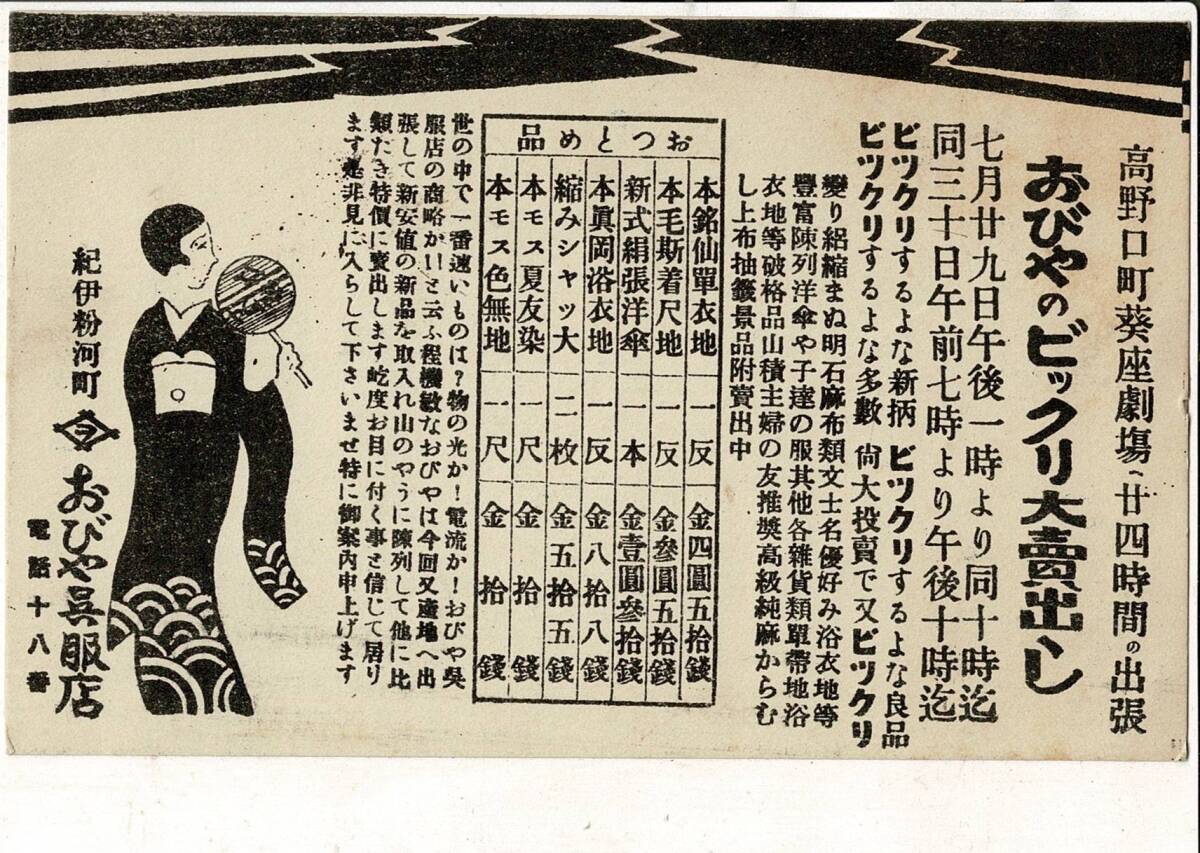 高野口町葵座劇塲へ廿四時間の出張
おびやのビックリ大賣出し
七月廿九日午後一時より同十時迄
同三十日午前七時より午後十時迄
ビツクリするよな新柄 ビツクリするよな良品
ビツクリするよな多數 尙大投賣で又ビツクリ
變り絽縮まぬ明石麻布類文士名優好み浴衣地等
豐富陳列洋傘や子達の服其他各雜貨類單帶地浴
衣地等破格品山積主婦の友推奬高級純麻からむ
し上布抽籤景品附賣出中
おつとめ品
本銘仙單衣地 一反 金四圓五拾錢
本毛斯着尺地 一反 金參圓五拾錢
新式絹張洋傘 一本 金壹圓參拾錢
本眞岡浴衣地 一反 金八拾八錢
縮みシャツ大 二枚 金五拾五錢
本モス夏友染 一尺 金拾錢
本モス色無地 一尺 金拾錢
世の中で一番速いものは？物の光か！電流か！おびや吳
服店の商略が！！と云ふ程機敏なおびやは今回又產地へ出
張して新安値の新品を取入れ山のやうに陳列して他に比
類なき特價に賣出します屹度お目に付く事と信じて居り
ます是非見に入らして下さいませ特に御案內申上げます
紀伊粉河町
おびや呉服店
電話十八番